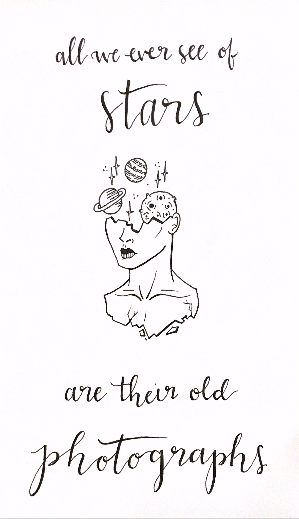 all we ever see of
stars
are their old
photographs